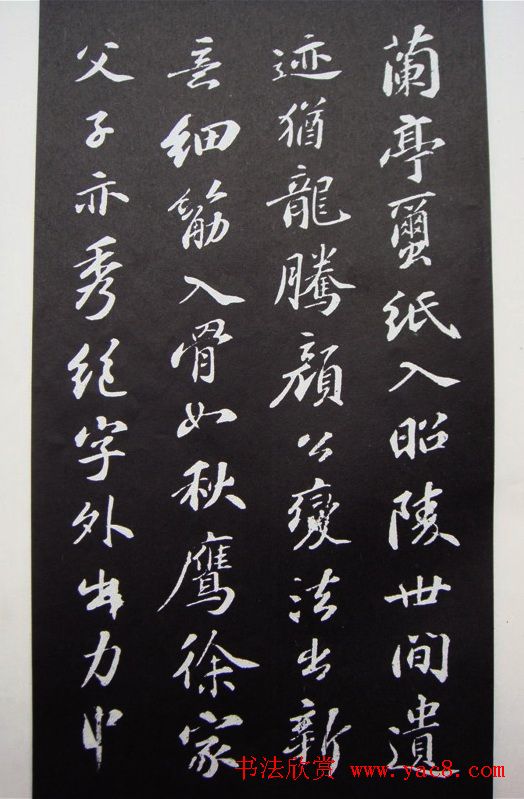 蘭亭蠒紙入昭陵世間遺
迹猶龍騰顏公變法出新
意細筋入骨如秋鷹徐家
父子亦秀絕字外出力中
书法欣赏 www.yac8.com